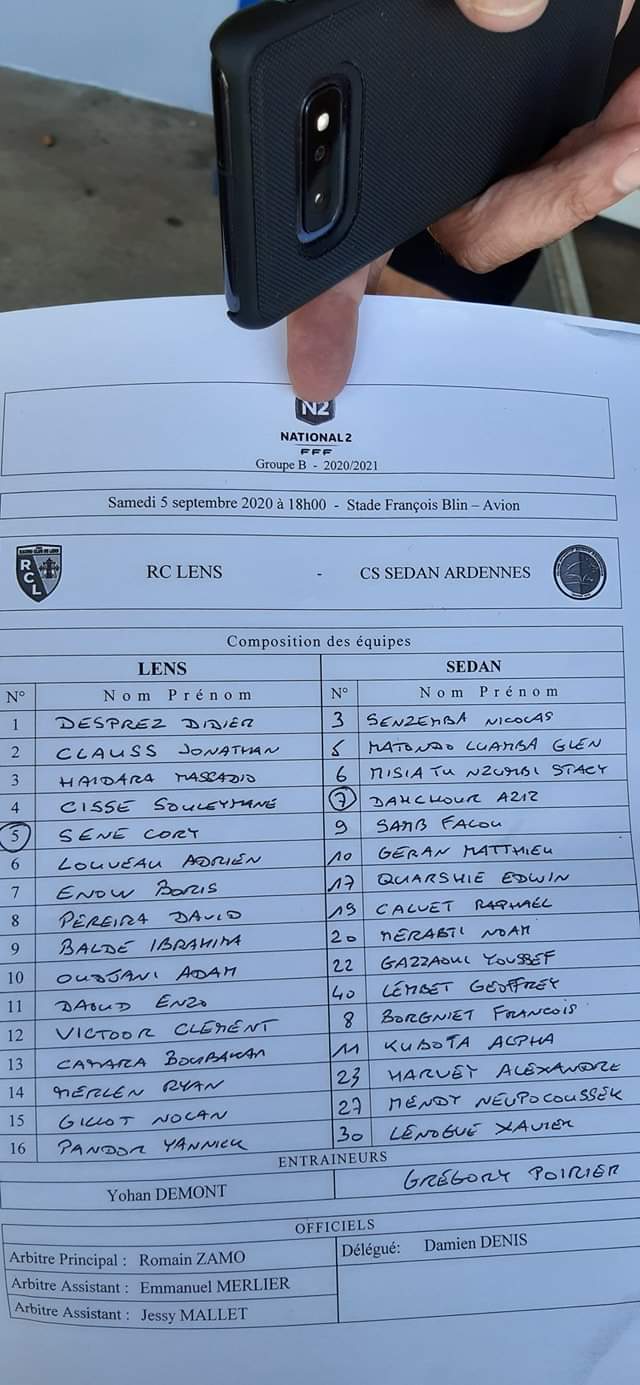 N2
NATIONAL 2
FFF
Groupe B - 2020/2021
Samedi 5 septembre 2020 à 18h00 - Stade François Blin – Avion
RCL RC LENS - CS SEDAN ARDENNES
Composition des équipes
LENS SEDAN
N° Nom Prénom N° Nom Prénom
1 DESPREZ DIDIER 3 SENZEMBA NICOLAS
2 CLAUSS JONATHAN 5 MATONDO LUAMBA GLEN
3 HAIDARA MASSADIO 6 MISIATU NZUMBI STACY
4 CISSE SOULEYMANE 7 DAHCHOUR AZIZ
5 SENE CORY 9 SAMB FALOU
6 LOUVEAU ADRIEN 10 GERAN MATTHIEU
7 ENOW BORIS 17 QUARSHIE EDWIN
8 PEREIRA DAVID 19 CALVET RAPHAEL
9 BALDÉ IBRAHIMA 20 MERABTI NOAM
10 OUDJANI ADAM 22 GAZZAOUI YOUSSEF
11 DAOUD ENZO 40 LEMBET GEOFFREY
12 VICTOOR CLEMENT 8 BORGNIET FRANCOIS
13 CAMARA BOUBAKAR 11 KUBOTA ALPHA
14 MERLEN RYAN 23 HARVEY ALEXANDRE
15 GILLOT NOLAN 27 MENDY NEUPOCOUSSEK
16 PANDOR YANNICK 30 LENOGUE XAVIER
ENTRAINEURS
Yohan DEMONT GRÉGORY POIRIER
OFFICIELS
Arbitre Principal : Romain ZAMO Délégué: Damien DENIS
Arbitre Assistant : Emmanuel MERLIER
Arbitre Assistant : Jessy MALLET